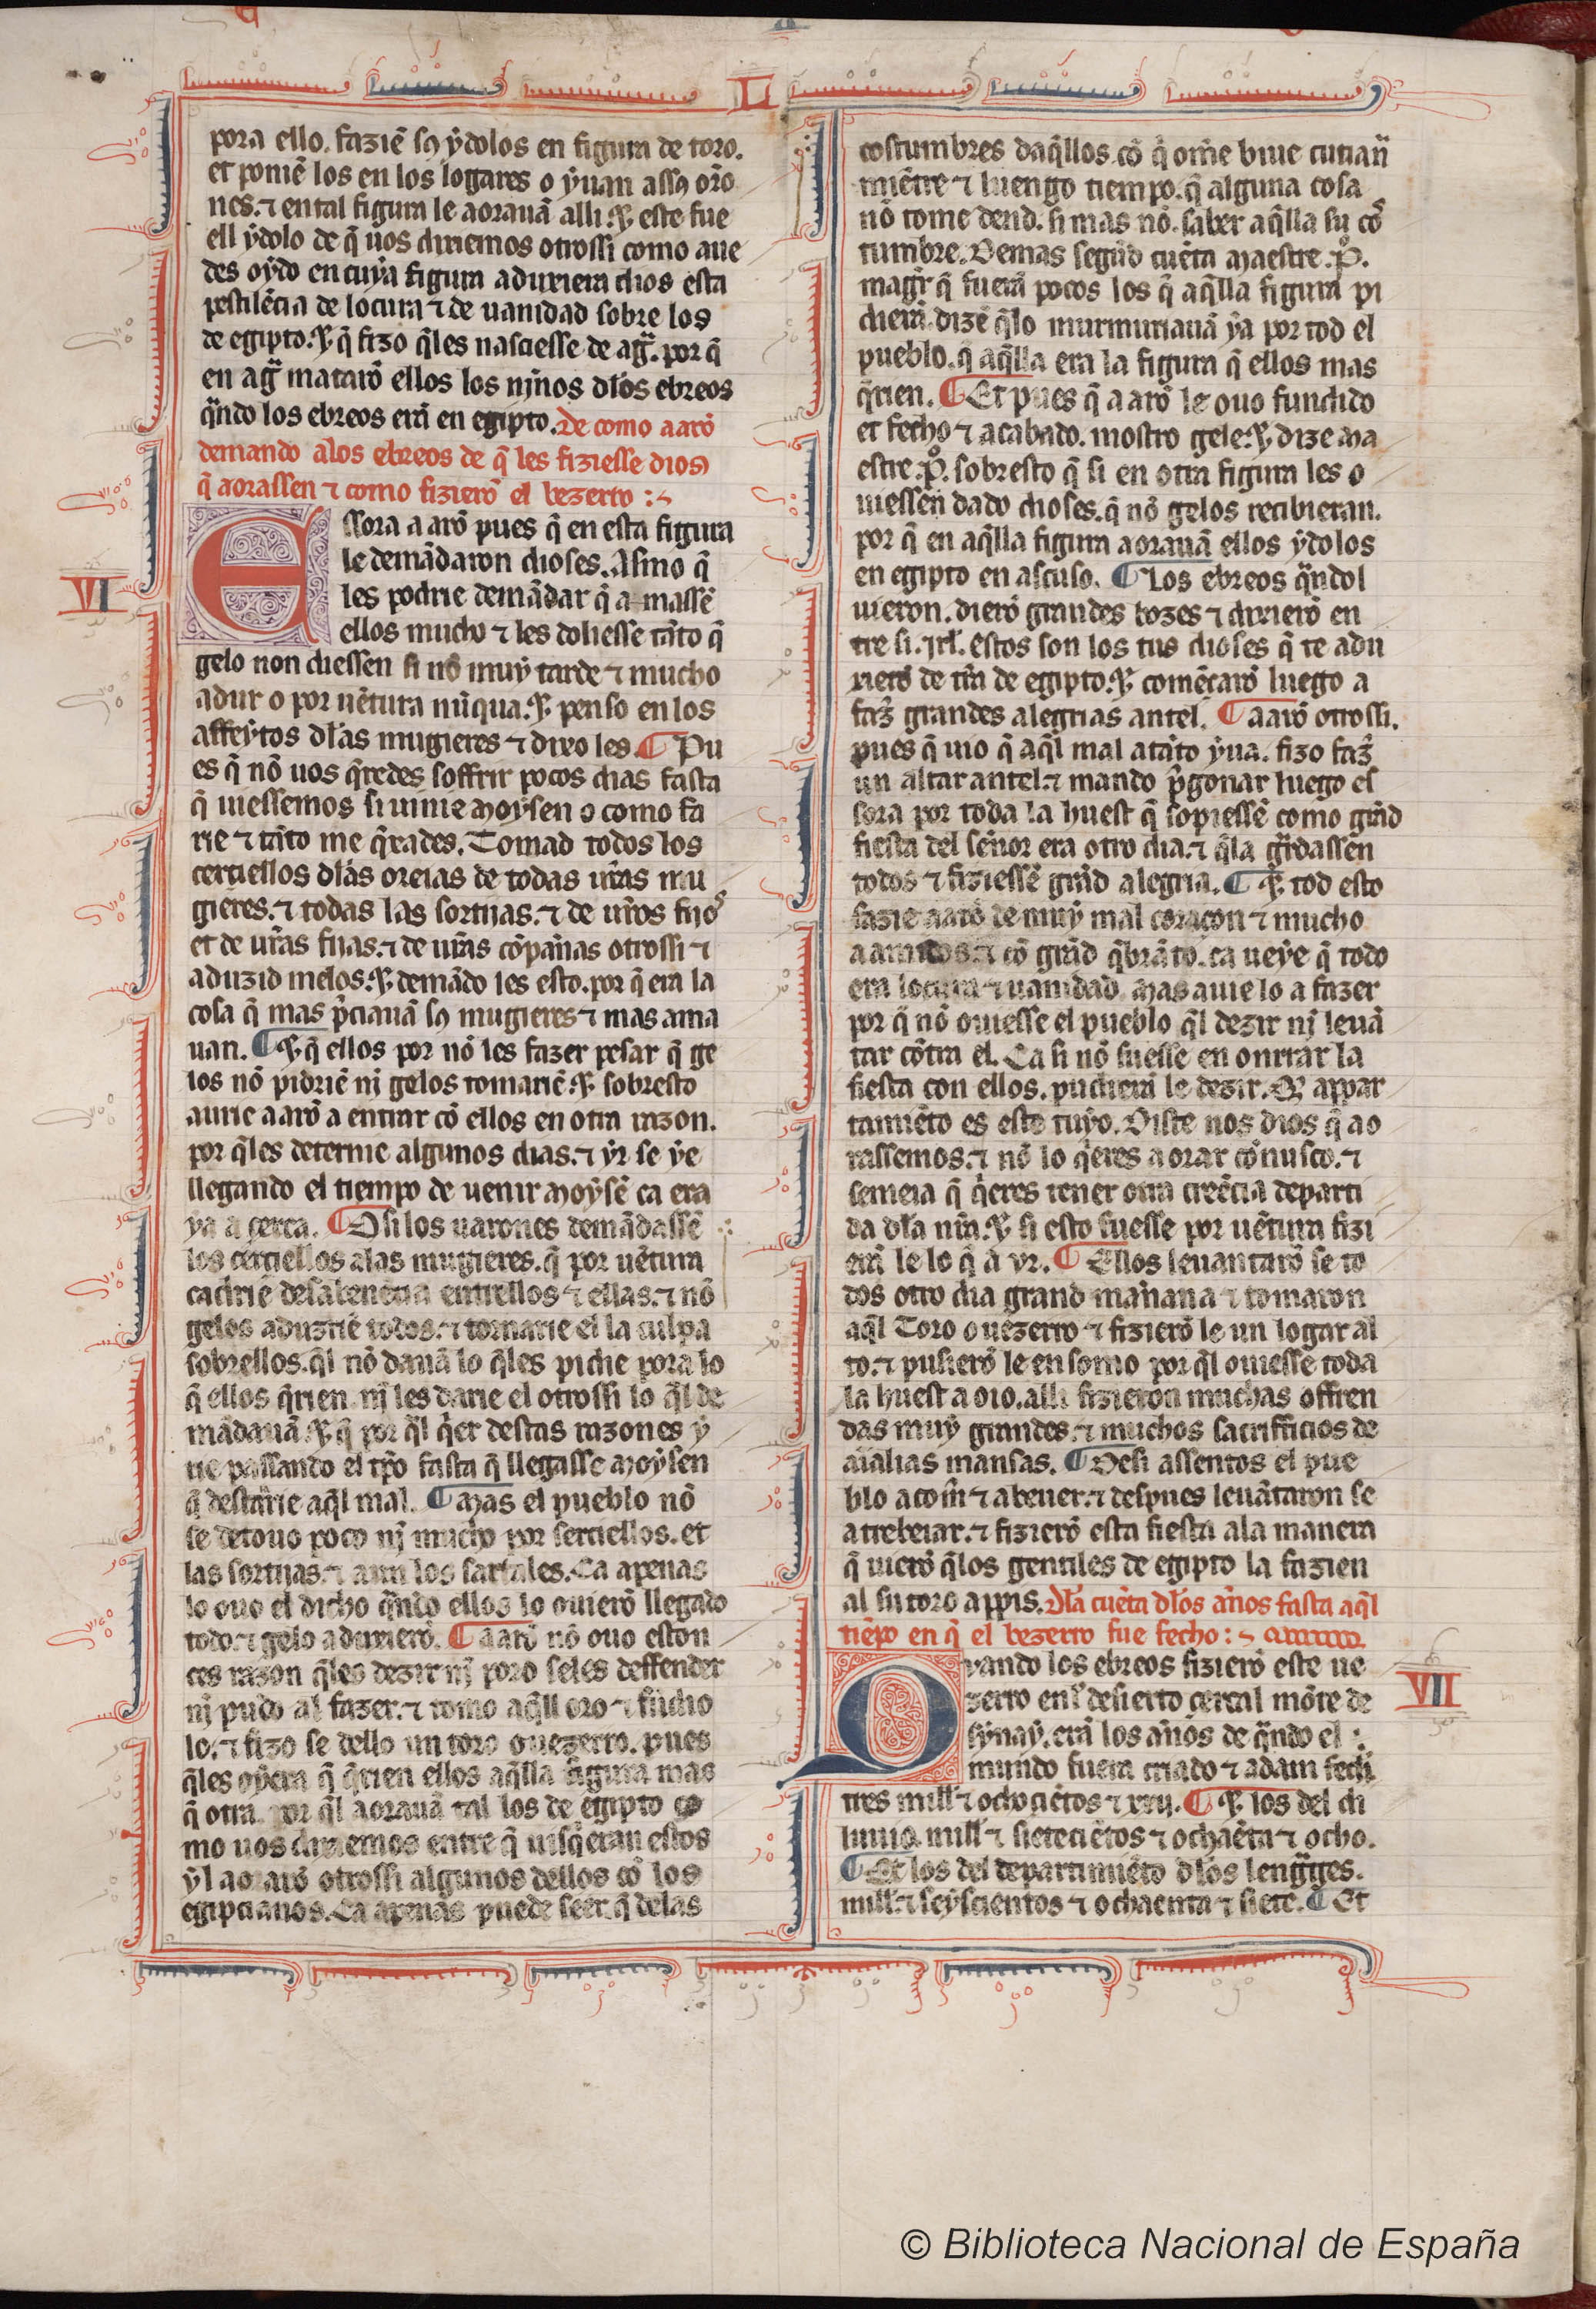 L
pora ello. fazie᷃ sꝯ ẏdolos en figura de toro.
et ponie᷃ los en los logares o ẏuan assꝯ oro᷃
nes. ⁊ en tal figura le aoraua᷃ alli. ⁊ este fue
ell ẏdolo de q᷃ uos dixiemos otrossi como aue
des oẏdo en cuẏa figura aduxiera dios esta
pestile᷃cia de locura ⁊ de uanidad sobre los
de egipto. ⁊ q᷃ fizo q᷃les nasciesse de ag̃. por q᷃
en ag̃ mataro᷃ ellos los nj̃nos dl̃os ebreos
q̃ndo los ebreos era᷃ en egipto. De como aaro᷃
demando alos ebreos de q᷃ les fiziesse diosꝯ
q᷃ aorassen ⁊ como fiziero᷃ el bezerro :~
VI
Essora aaro᷃ pues q᷃ en esta figura
le dema᷃daron dioses. Asmo q᷃
les podrie dema᷃dar q᷃ amasse᷃
ellos mucho ⁊ les doliesse ta᷃to q᷃
gelo non diessen si no᷃ muẏ tarde ⁊ mucho
adur o por ue᷃tura nu᷃qua. ⁊ penso en los
affeẏtos dl̃as mugieres ⁊ dixo les. ¶ Pu
es q᷃ no᷃ uos q᷃redes soffrir pocos dias fasta
q᷃ uiessemos si uinie Moẏsen o como fa
rie ⁊ ta᷃to me q᷃xades. Tomad todos los
cerciellos dl̃as oreias de todas ur̃as mu
gieres. ⁊ todas las sortijas. ⁊ de ur̃os fijos
et de ur̃as fijas. ⁊ de ur̃as co᷃pan̄as otrossi ⁊
aduzid melos. ⁊ dema᷃do les esto. por q᷃ era la
cosa q᷃ mas p᷃ciaua᷃ sꝯ mugieres ⁊ mas ama
uan. ¶ ⁊ q᷃ ellos por no᷃ les fazer pesar q᷃ ge
los no᷃ pidrie᷃ nj̃ gelos tomarie᷃. ⁊ sobresto
aurie aaro᷃ a entrar co᷃ ellos en otra razon.
por q᷃les deternie algunos dias. ⁊ ẏr se ẏe
llegando el tiempo de uenir Moẏse᷃ ca era
ẏa acerca. ¶ O si los uarones dema᷃dasse᷃
los cerciellos alas mugieres. q᷃ por ue᷃tura
cadrie᷃ desabenencia entrellos ⁊ ellas. ⁊ no᷃
gelos aduzrie᷃ todos. ⁊ tornarie el la culpa
sobrellos. q᷃l no᷃ daua᷃ lo q᷃les pidie pora lo
q᷃ ellos q᷃rien nj̃ les darie el otrossi lo q᷃l de
ma᷃daua᷃. ⁊ q᷃ por q᷃l q᷃er destas razones ẏ
rie passando el tp̃o fasta q᷃ llegasse Moẏsen
q᷃ destarie aq᷃l mal. ¶ Mas el pueblo no᷃
se detouo poco nj̃ mucho por serciellos. et
las sortijas. ⁊ aun los sartales. Ca apenas
lo ouo el dicho q̃ndo ellos lo ouiero᷃ llegado
todo. ⁊ gelo aduxiero᷃. ¶ aaro᷃ no᷃ ouo eston
ces razon q᷃les dezir nj̃ poro seles deffender
nj̃ pudo al fazer. ⁊ tomo aq᷃ll oro ⁊ fu᷃dio
lo. ⁊ fizo se dello un toro o uezerro. pues
q᷃les oẏera q᷃ q᷃rien ellos aq᷃lla figura mas
q᷃ otra. por q᷃l aoraua᷃ tal los de egipto co
mo uos dixiemos entre q᷃ uisq᷃eran estos
ẏl aoraro᷃ otrossi algunos dellos co᷃ los
egipcianos. Ca apenas puede seer. q᷃ delas
costumbres daq᷃llos. co᷃ q᷃ ome᷃ biue cutian̄
mie᷃tre ⁊ luengo tiempo. q᷃ alguna cosa
no᷃ tome dend. si mas no᷃. saber aq᷃lla su cos
tumbre. Demas segu᷃d cue᷃ta Maestre. P̊.
mag̃r q᷃ fuera᷃ pocos los q᷃ aq᷃lla figura pi
diera᷃. dize᷃ q᷃lo murmuriaua᷃ ẏa por tod el
pueblo. q᷃ aq᷃lla era la figura q᷃ ellos mas
q᷃rien. ¶ Et pues q᷃ aaro᷃ le ouo fundido
et fecho ⁊ acabado. mostro gele. ⁊ dize Ma
estre. P̊. sobresto q᷃ si en otra figura les o
uiessen dado dioses. q᷃ no᷃ gelos recibieran.
por q᷃ en aq᷃lla figura aoraua᷃ ellos ẏdolos
en egipto en ascuso. ¶ Los ebreos q̃ndol
uieron. diero᷃ grandes bozes ⁊ dixiero᷃ en
tre si. Jrl̃. estos son los tus dioses q᷃ te adu
xiero᷃ de tr̃a de egipto. ⁊ come᷃caro᷃ luego a
faz̃ grandes alegrias antel. ¶ aaro᷃ otrossi.
pues q᷃ uio q᷃ aq᷃l mal ata᷃to ẏua. fizo faz̃
un altar antel. ⁊ mando p᷃gonar luego es
sora por toda la huest q᷃ sopiesse᷃ como gra᷃d
fiesta del sen̄or era otro dia. ⁊ q᷃la g̃rdassen
todos ⁊ fiziesse᷃ gra᷃d alegria. ¶ ⁊ tod esto
fazie aaro᷃ de muẏ mal coraçon ⁊ mucho
amidos. ⁊ co᷃ gra᷃d q᷃bra᷃to. ca ueẏe q᷃ todo
era locura ⁊ uanidad. Mas auie lo a fazer
por q᷃ no᷃ ouiesse el pueblo q᷃l dezir nj̃ leua᷃
tar co᷃tra el. Ca si no᷃ fuesse en onrrar la
fiesta con ellos. pudiera᷃ le dezir. Q᷃ appar
tamie᷃to es este tuẏo. Diste nos dios q᷃ ao
rassemos. ⁊ no᷃ lo q᷃eres aorar co᷃nusco. ⁊
semeia q᷃ q᷃eres tener otra cree᷃cia departi
da dl̃a nr̃a. ⁊ si esto fuesse por ue᷃tura fizi
era᷃ le lo q᷃ a ur. ¶ Ellos leuantaro᷃ se to
dos otro dia grand man̄ana ⁊ tomaron
aq᷃l Toro o uezerro ⁊ fiziero᷃ le un logar al
to. ⁊ pusiero᷃ le en somo por q᷃l ouiesse toda
la huest a oio. alli fizieron muchas offren
das muẏ grandes. ⁊ muchos sacrifficios de
aı᷃alias mansas. ¶ Desi assentos el pue
blo a com̃ ⁊ a beuer. ⁊ despues leua᷃taron se
a trebeiar. ⁊ fiziero᷃ esta fiesta ala manera
q᷃ uiero᷃ q᷃los gentiles de egipto la fazien
al su toro appis. Dl̃a cue᷃ta dl̃os an̄os fasta aq᷃l
tie᷃po en q᷃ el bezerro fue fecho :~
VII
Quando los ebreos fiziero᷃ este ue
zerro enl̃ desierto cercal mo᷃te de
sẏnaẏ. era᷃ los an̄os de q̃ndo el
mundo fuera criado ⁊ adam fecho
tres mill ⁊ ochocie᷃tos ⁊ xxij. ¶ ⁊ los del di
luuio. mill ⁊ sietecie᷃tos ⁊ ochae᷃ta ⁊ ocho.
¶ Et los del departimie᷃to dl̃os leng̃ges.
mill. ⁊ seẏscientos ⁊ ochaenta ⁊ siete. ¶ Et
© Biblioteca Nacional de España